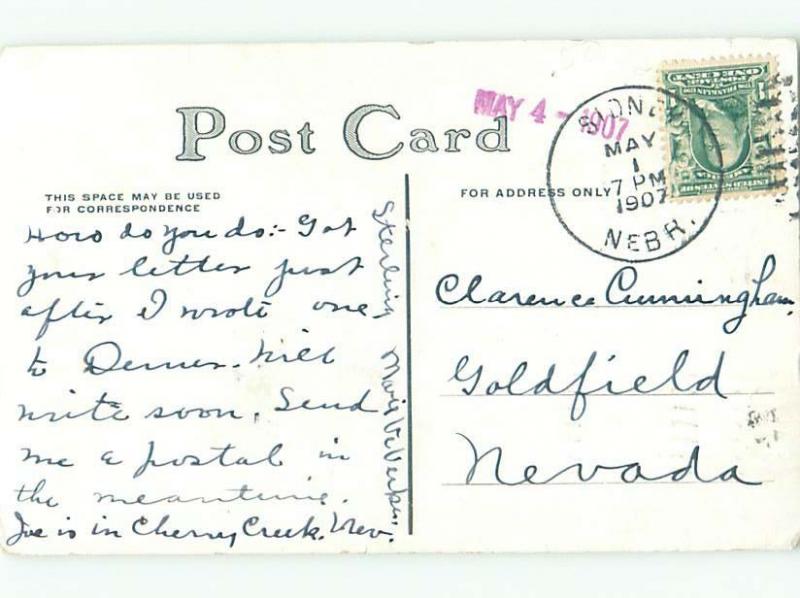 MAY 4 - 1907
Post Card
MAY
1
7 PM
1907
NEBR.
ONE CENT
THIS SPACE MAY BE USED
FOR CORRESPONDENCE
FOR ADDRESS ONLY
How do you do:- Got
your letter just
after I wrote one
to Denver. Will
write soon. Send
me a postal in
the meantime.
Joe is in Cherry Creek. Nev.
Sterling
Clarence Cunningham,
Goldfield
Nevada